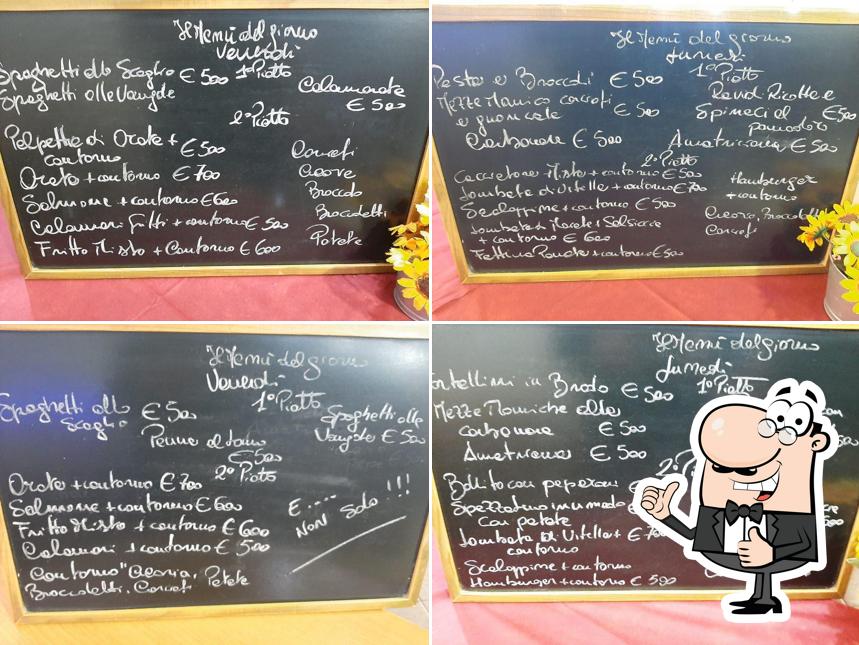 Il Menù del giorno
Venerdì
1° Piatto
Spaghetti allo Scoglio € 5,00
Spaghetti alle Vongole
Calamarata
€ 5,00
2° Piatto
Polpette di Orata +
contorno € 5,00
Orata + contorno € 7,00
Salmone + contorno € 6,00
Calamari fritti + contorno € 5,00
Fritto Misto + Contorno € 6,00
Carciofi
Broccolo
Broccoletti
Patate
Il Menù del giorno
Lunedì
1° Piatto
Pasta e Broccoli € 5,00
Mezze Maniche carciofi
e guanciale € 5,00
Carbonara € 5,00
Ravioli Ricotta e
Spinaci al € 5,00
pomodoro
Amatriciana € 5,00
2° Piatto
Cacciatora Misto + contorno € 5,00
Lombata di Vitella + contorno € 7,00
Scaloppine + contorno € 5,00
Lombata di Maiale e Salsicce
+ contorno € 6,00
Fettina Panata + contorno € 5,00
Hamburger
+ contorno
Cicoria, Broccoletti
Carciofi
Il Menù del giorno
Venerdì
1° Piatto
Spaghetti allo € 5,00
Scoglio
Spaghetti alle
Vongole € 5,00
Penne al tonno
€ 5,00
2° Piatto
Orata + contorno € 7,00
Salmone + contorno € 6,00
Fritto Misto + contorno € 6,00
Calamari + contorno € 5,00
E.....
NON Solo !!!
Contorno "Cicoria, Patate
Broccoletti, Carciofi
Il Menù del giorno
Lunedì
1° Piatto
in Brodo € 5,00
Mezze Maniche alla
carbonara € 5,00
Amatriciana € 5,00
2°
Bollito con peperoni €
Spezzatino in umido
con patate
Lombata di Vitella + €
contorno
Scaloppine + contorno
Hamburger + contorno € 5,00